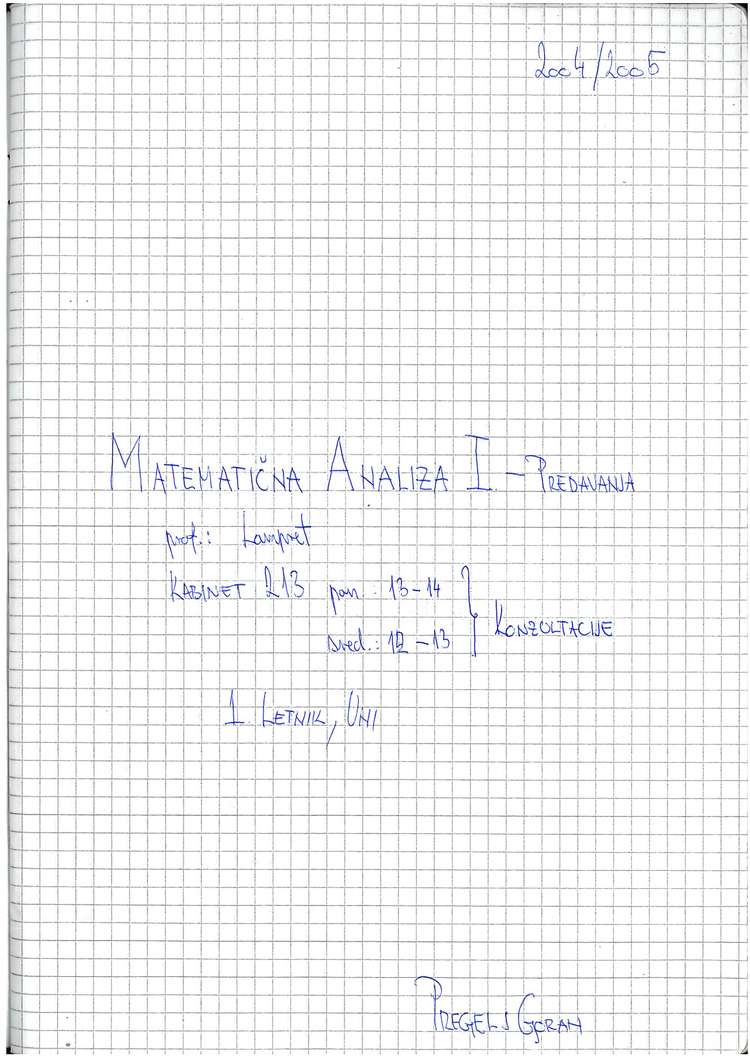 2004/2005
MATEMATIČNA ANALIZA I. - PREDAVANJA
prof.: Lampret
KABINET 213 pon.: 13-14
sred.: 12-13 KONZULTACIJE
1. LETNIK, UNI
PREGELJ GORAN